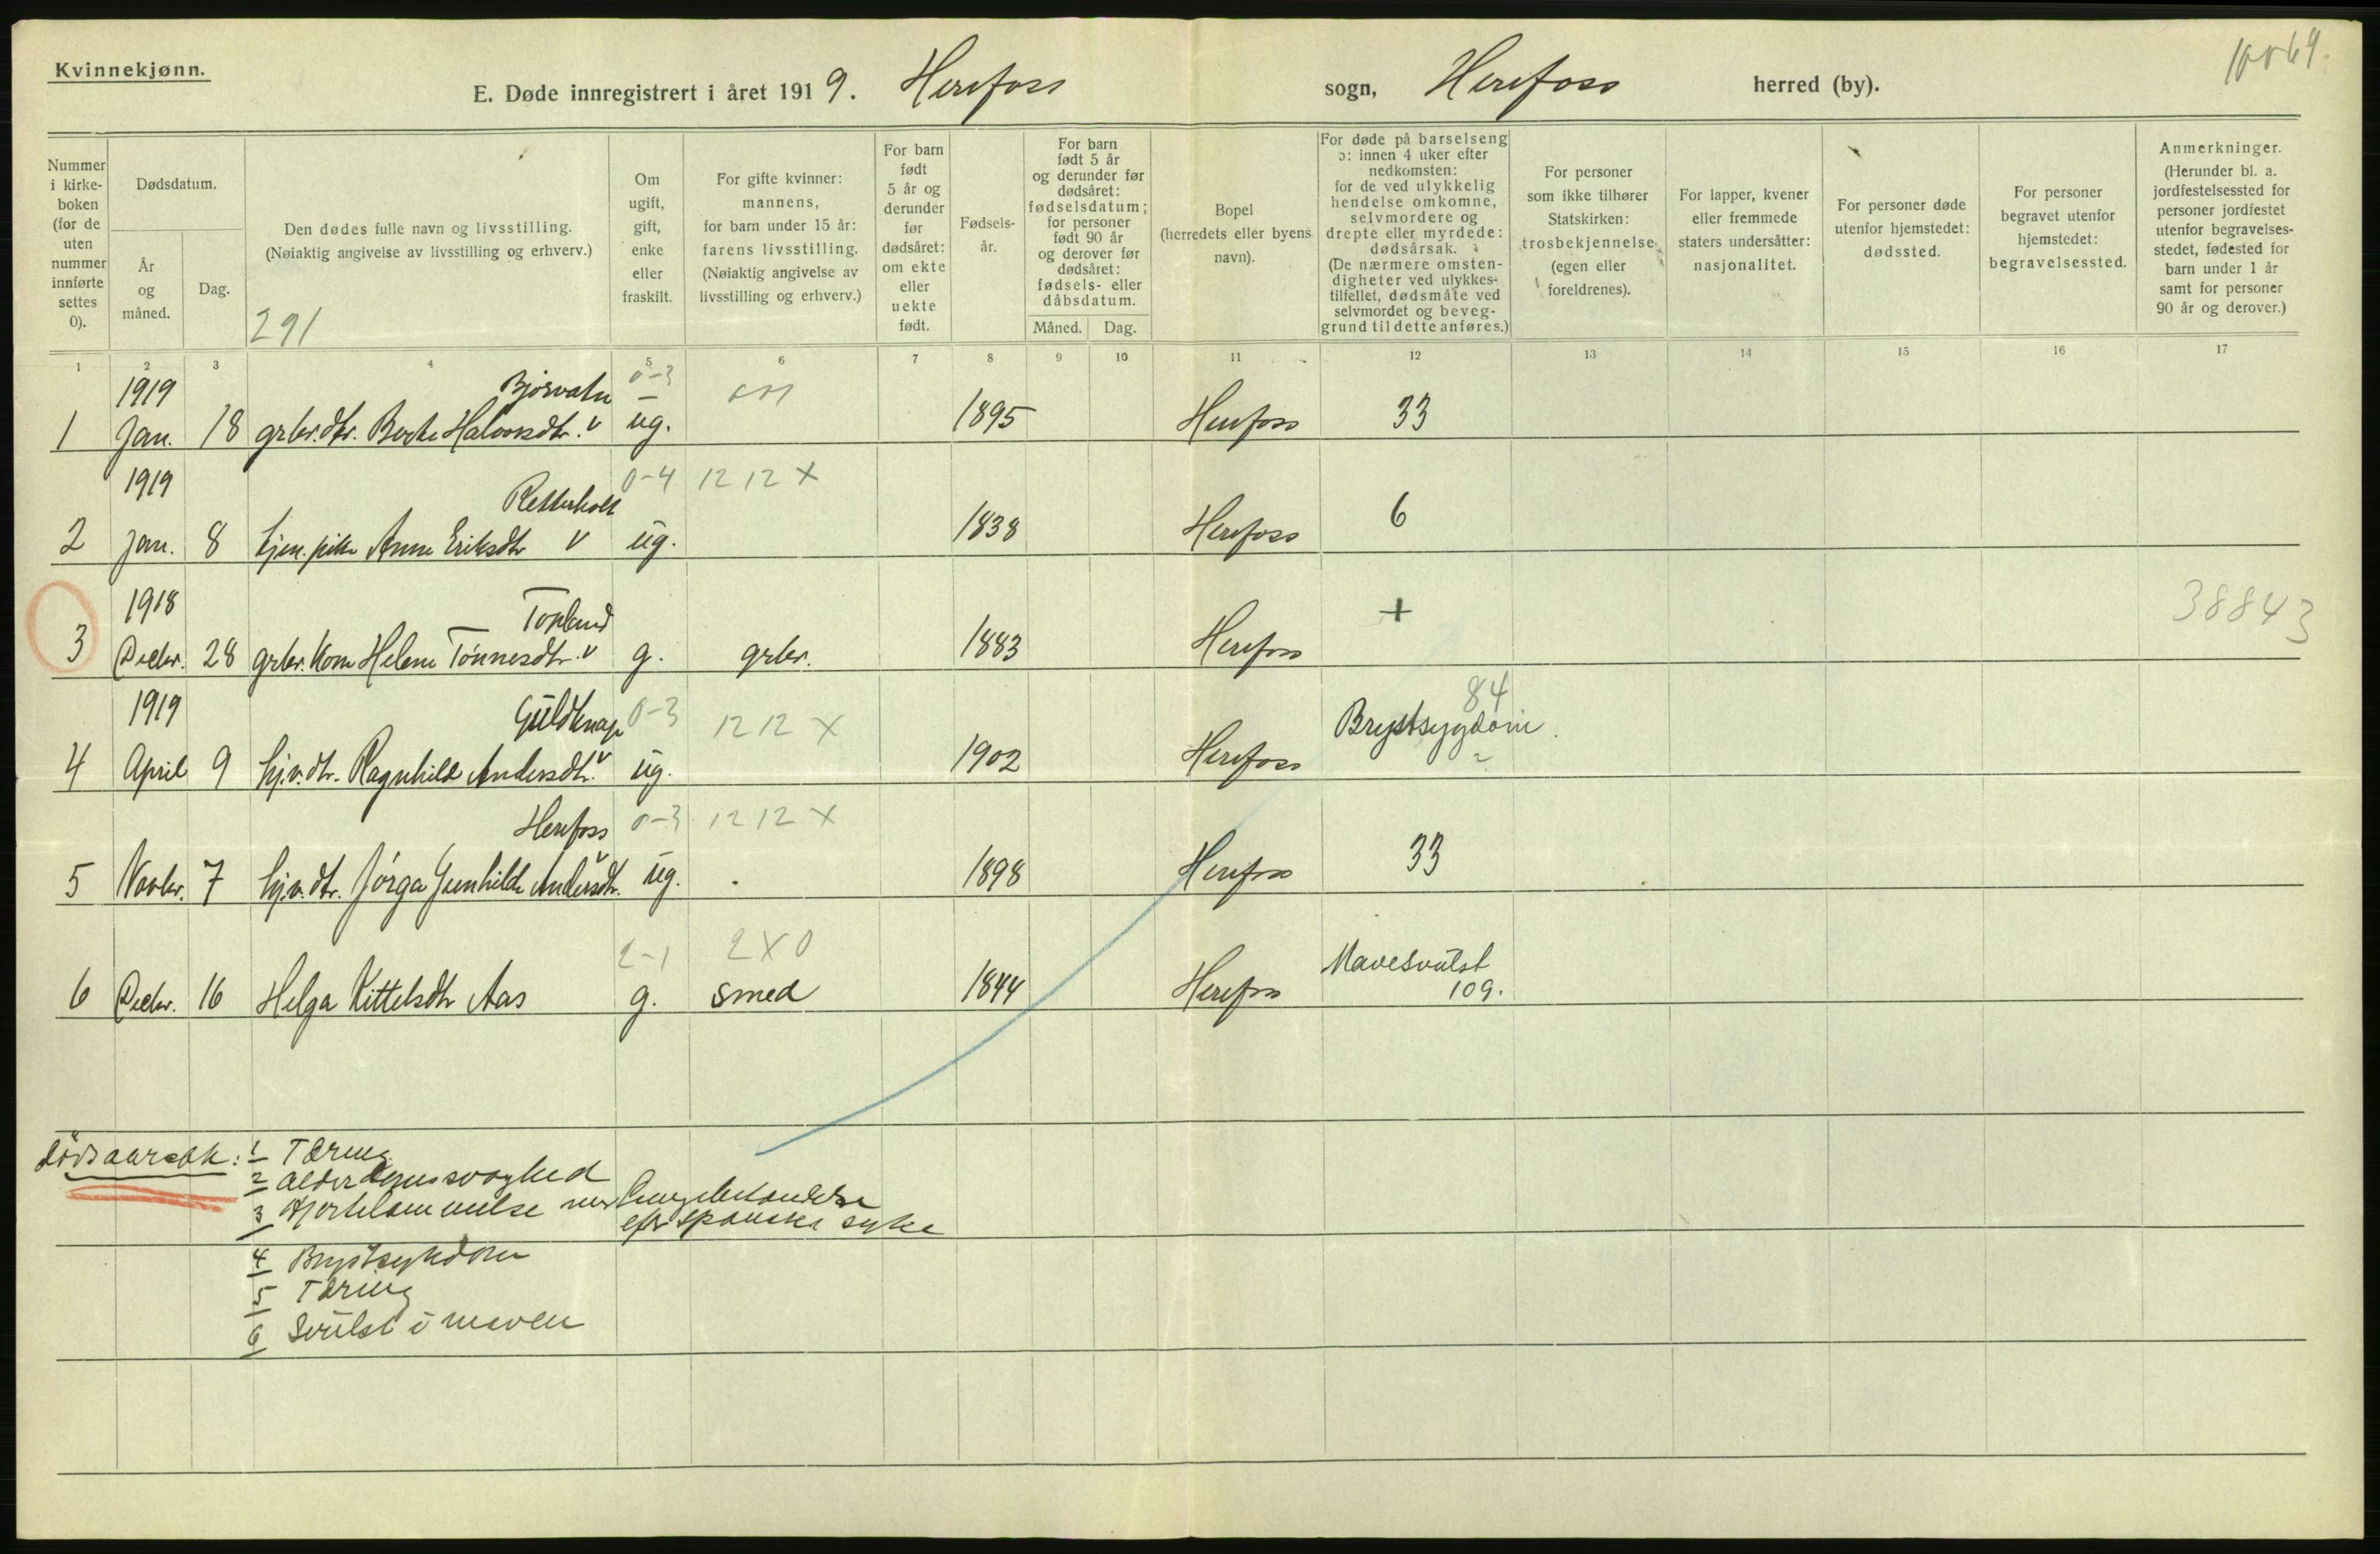 Kvinnekjønn.
E. Døde innregistrert i året 1919. Herefoss sogn, Herefoss herred (by).
Nummer i kirkeboken (for de uten nummer innførte settes 0).
Dødsdatum.
År og måned.
Dag.
Den dødes fulle navn og livsstilling.
(Nøiaktig angivelse av livsstilling og erhverv.)
291
Om ugift, gift, enke eller fraskilt.
For gifte kvinner: mannens, for barn under 15 år: farens livsstilling. (Nøiaktig angivelse av livsstilling og erhverv.)
For barn født 5 år og derunder før dødsåret: om ekte eller uekte født.
Fødselsår.
For barn født 5 år og derunder før dødsåret: fødselsdatum; for personer født 90 år og derover før dødsåret: fødsels- eller dåbsdatum.
Måned. Dag.
Bopel (herredets eller byens navn).
For døde på barselseng ɔ: innen 4 uker efter nedkomsten: for de ved ulykkelig hendelse omkomne, selvmordere og drepte eller myrdede: dødsårsak. (De nærmere omstendigheter ved ulykkestilfellet, dødsmåte ved selvmordet og beveggrund til dette anføres.)
For personer som ikke tilhører Statskirken: trosbekjennelse (egen eller foreldrenes).
For lapper, kvener eller fremmede staters undersåtter: nasjonalitet.
For personer døde utenfor hjemstedet: dødssted.
For personer begravet utenfor hjemstedet: begravelsessted.
Anmerkninger. (Herunder bl. a. jordfestelsessted for personer jordfestet utenfor begravelsesstedet, fødested for barn under 1 år samt for personer 90 år og derover.)
1 2 3 4 5 6 7 8 9 10 11 12 13 14 15 16 17
1919 Bjorvatn 0-3
1 Jan. 18 grbr.dtr. Berte Halvorsdtr. v ug. 1895 Herefoss 33
1919 Retterholt 0-4 12 12 X
2 Jan. 8 tjen.pike Anne Eriksdtr v ug. 1838 Herefoss 6
1918 Topland + 38843
3 Decbr. 28 grbr. kone Helene Tønnesdtr. v g. grbr. 1883 Herefoss
1919 Guldknap 0-3 12 12 X 84
4 April 9 hj.v.dtr. Ragnhild Andersdtr. v ug. 1902 Herefoss Brystsygdom.
Herefoss 0-3 12 12 X
5 Novbr. 7 hj.v.dtr. Jørga Gunhilde Andersdtr. ug. 1898 Herefoss 33
2-1 2 X 0
6 Decbr. 16 Helga Kittelsdtr Aas g. smed 1844 Herefoss Mavesvulst 109.
Dødsaarsak: 1 Tæring
2 Alderdomssvaghed
3 Hjertelammelse
efter spanske syke
4 Brystsykdom
5 Tæring
6 Svulst i maven